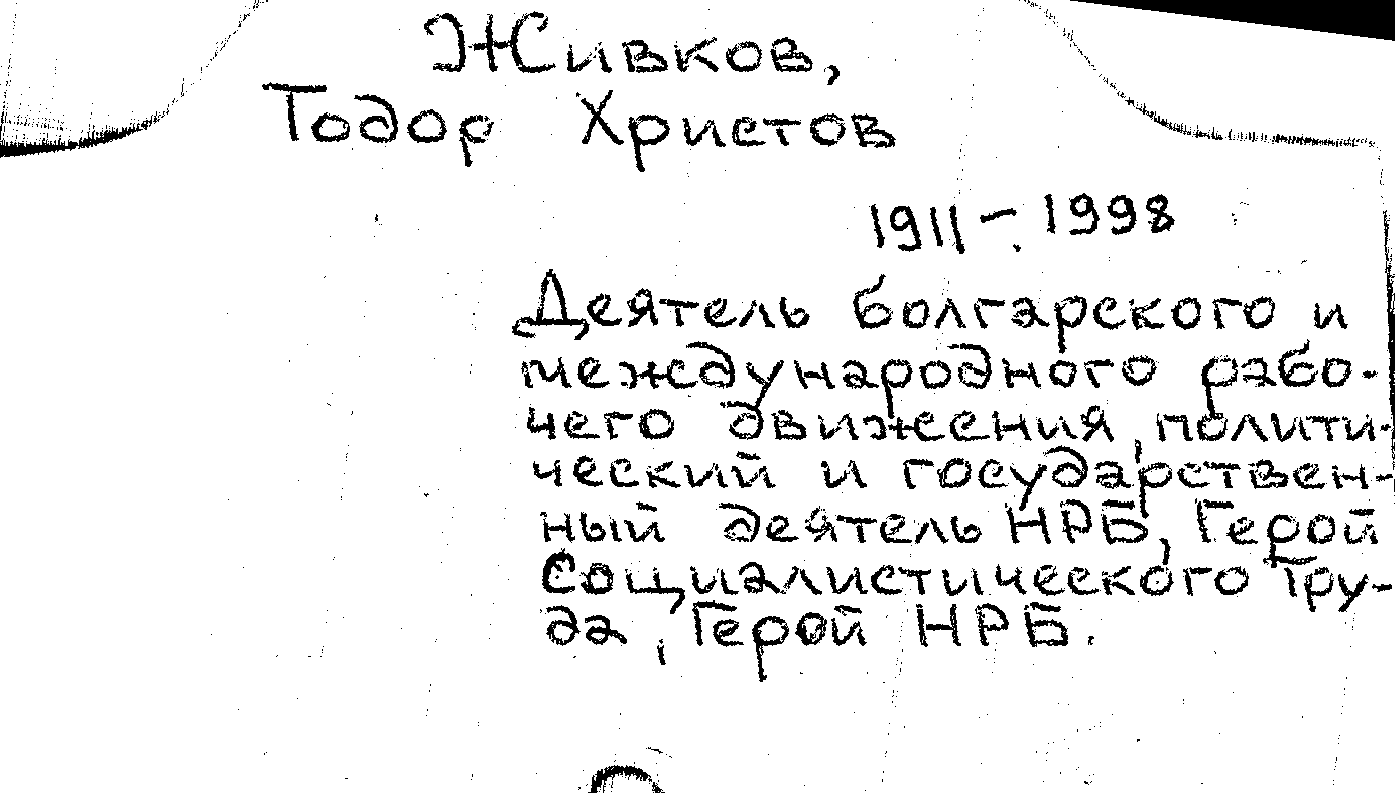 Живков,
Тодор Христов
1911 – 1998
Деятель болгарского и
международного рабо-
чего движения, полити-
ческий и государствен-
ный деятель НРБ, Герой
Социалистического Тру-
да, Герой НРБ.